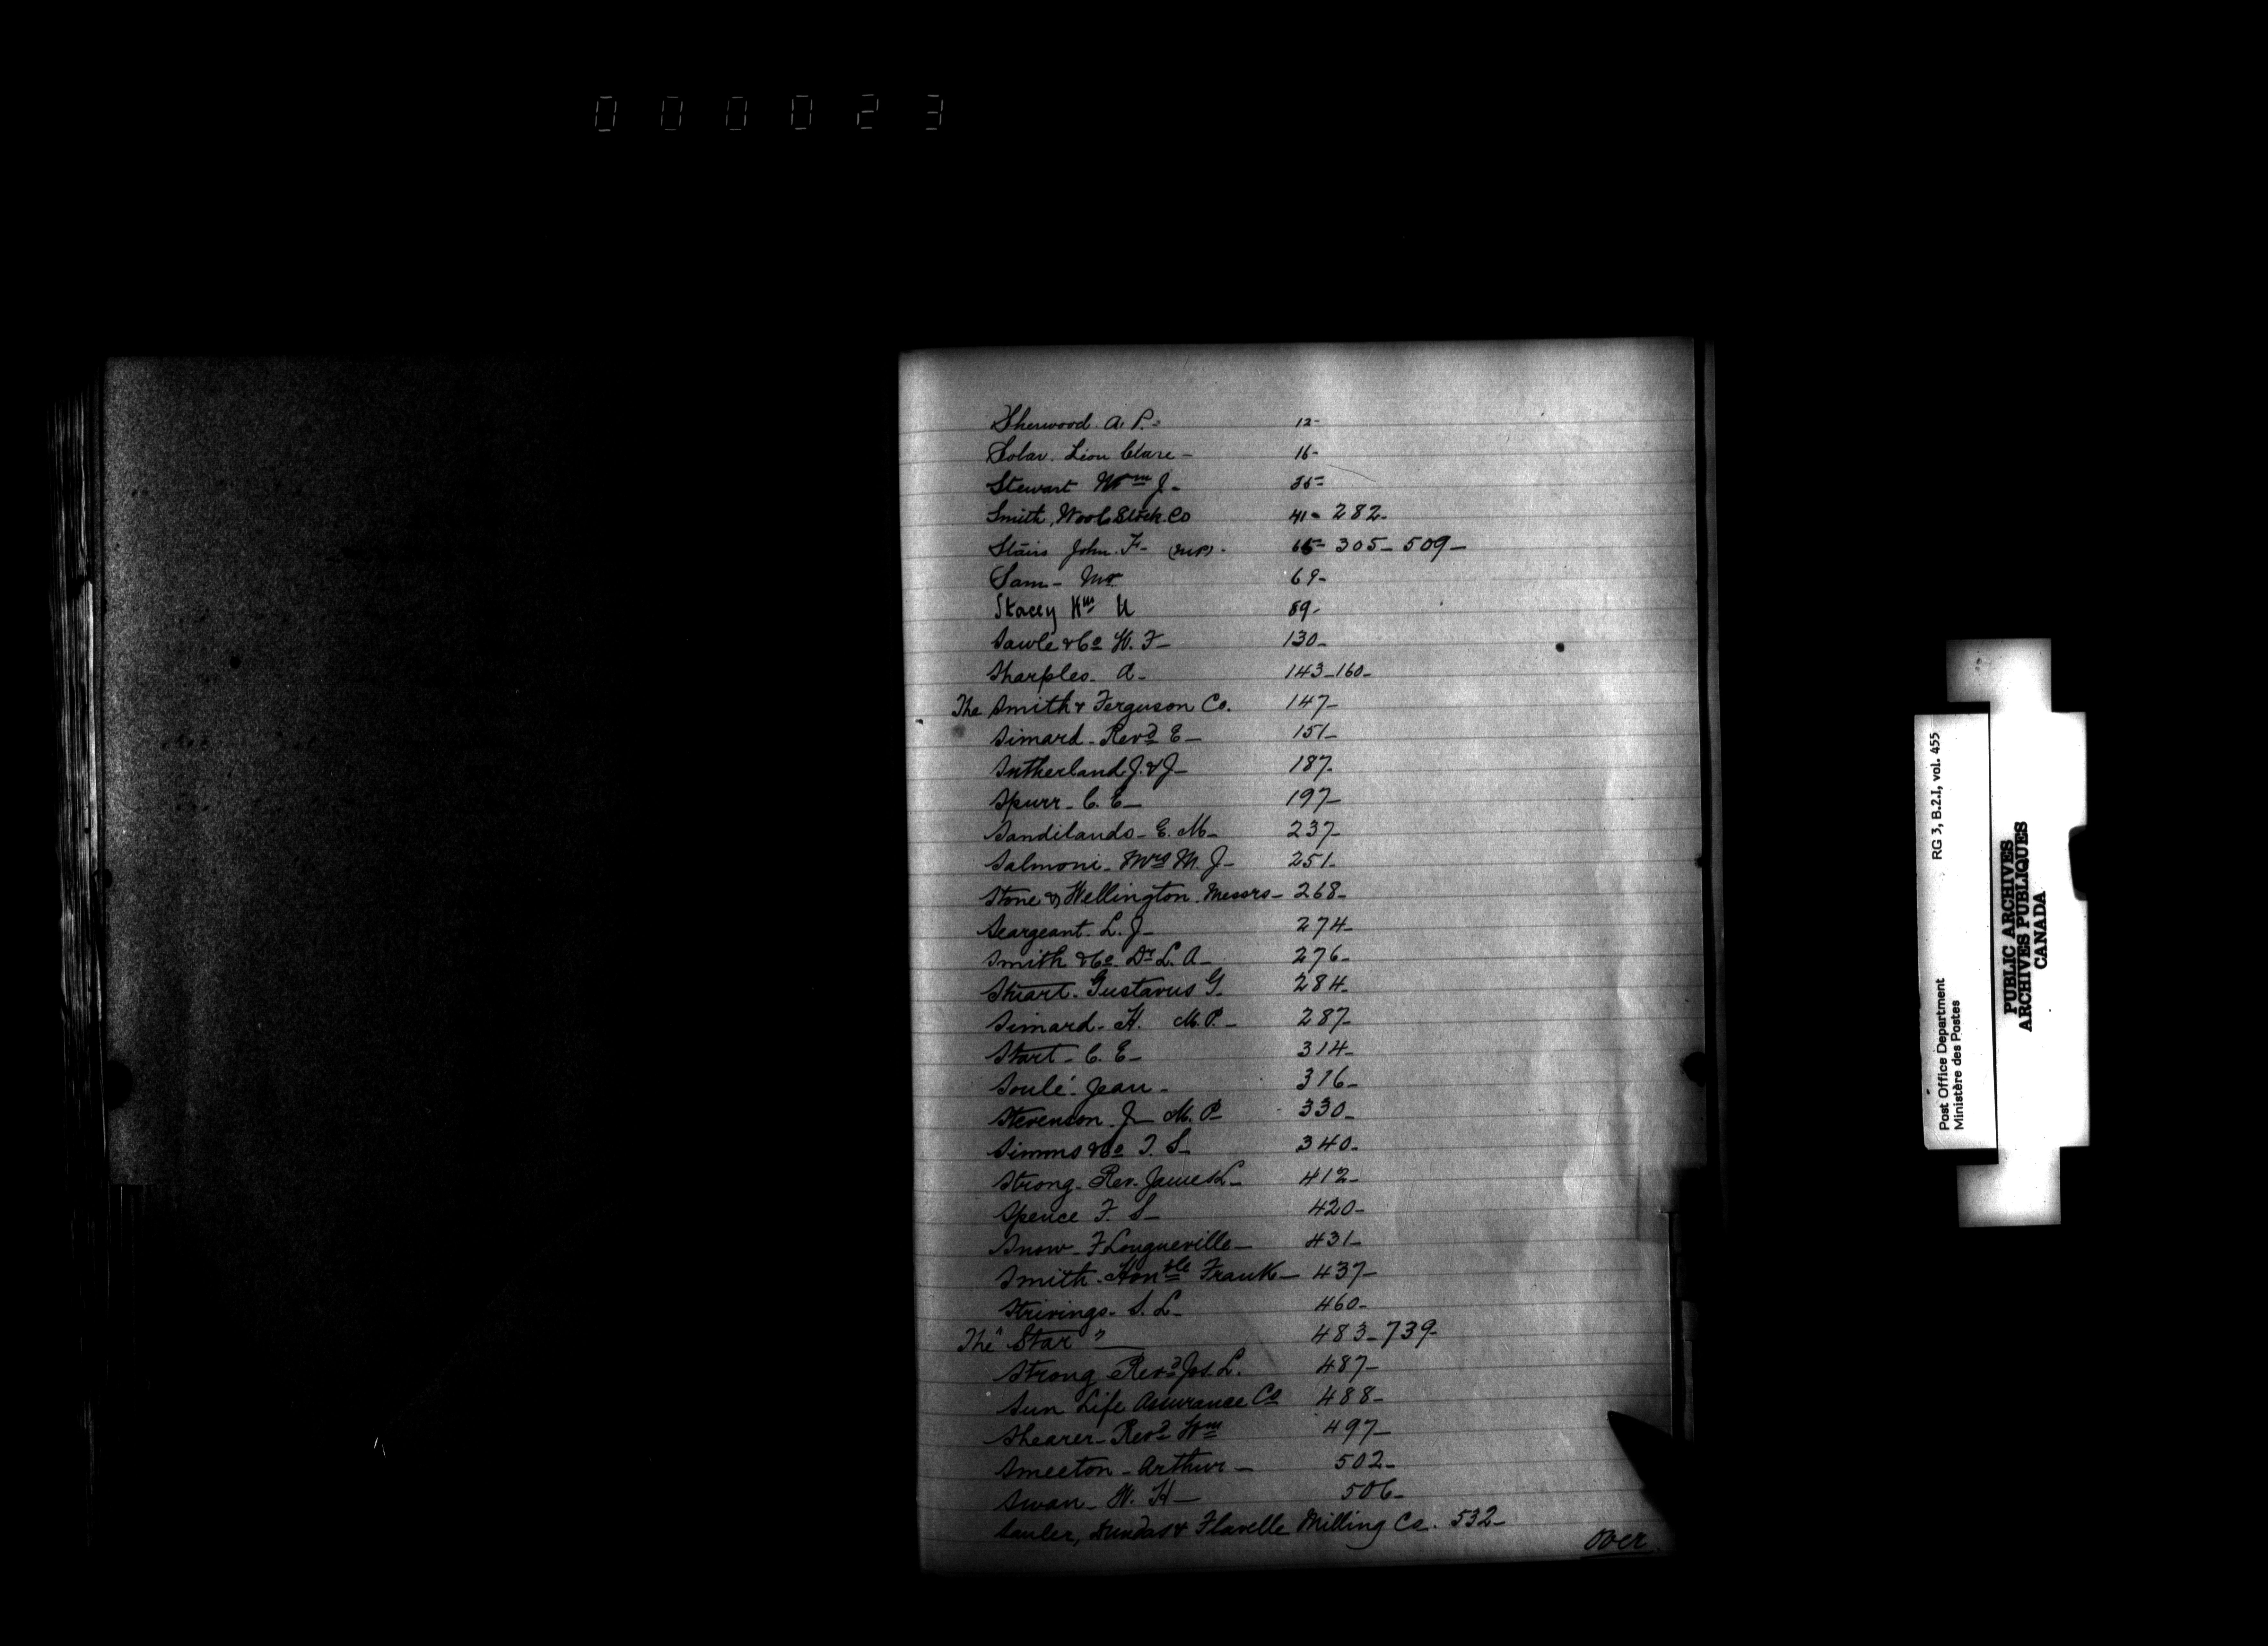 000023
Sherwood. A. P. - 12-
Solar. Lion Clare - 16-
Stewart Wm J. - 35-
Smith, Wool Stock. Co 41- 282-
Stairs John. F- (M.P). 65- 305- 509-
Sam- Mr 69-
Stacey Wm H 89-
Sawle & Co W. F- 130-
Sharples- A- 143-160-
The Smith & Ferguson Co. 147-
Simard- Revd E- 151-
Sutherland J. & J- 187-
Spurr- C. E- 197-
Sandilands- E. M- 237-
Salmoni- Mrs M. J- 251-
Stone & Wellington. Messrs- 268-
Seargeant. L. J- 274-
Smith & Co. Dr L. A- 276-
Stuart- Gustavus G. 284-
Simard- H. M.P. - 287-
Start- C. E- 314-
Soulé- Jean- 316-
Stevenson. J- M. P- 330-
Simms & Co T. S- 340-
Strong- Rev. James L- 412-
Spence F. S- 420-
Snow- F Longueville- 431-
Smith- Honble Frank- 437-
Strivings- S. L- 460-
The "Star" - 483-739-
Strong Revd Jas. L. 487-
Sun Life Assurance Co 488-
Shearer- Revd Wm 497-
Smeeton- Arthur- 502-
Swan- W. H- 506-
Dundas & Flavelle Milling Co. 532-
Over.
Post Office Department RG 3, B.2.I, vol. 455
Ministère des Postes
PUBLIC ARCHIVES
ARCHIVES PUBLIQUES
CANADA